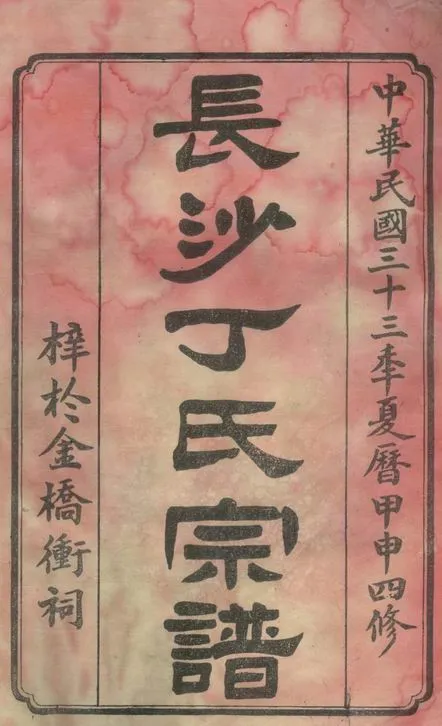 中華民國三十三年夏曆甲申四修
長沙丁氏宗譜
梓於金橋衝祠